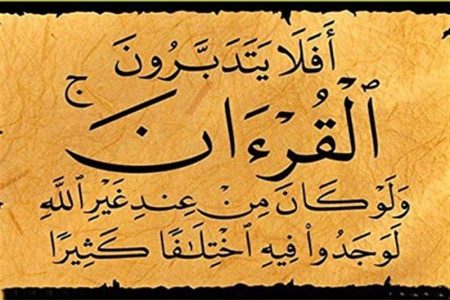 أَفَلَا يَتَدَبَّرُونَ
ٱلْقُرْءَانَ ۚ
وَلَوْ كَانَ مِنْ عِندِ غَيْرِ ٱللَّهِ
لَوَجَدُوا۟ فِيهِ ٱخْتِلَـٰفًا كَثِيرًا